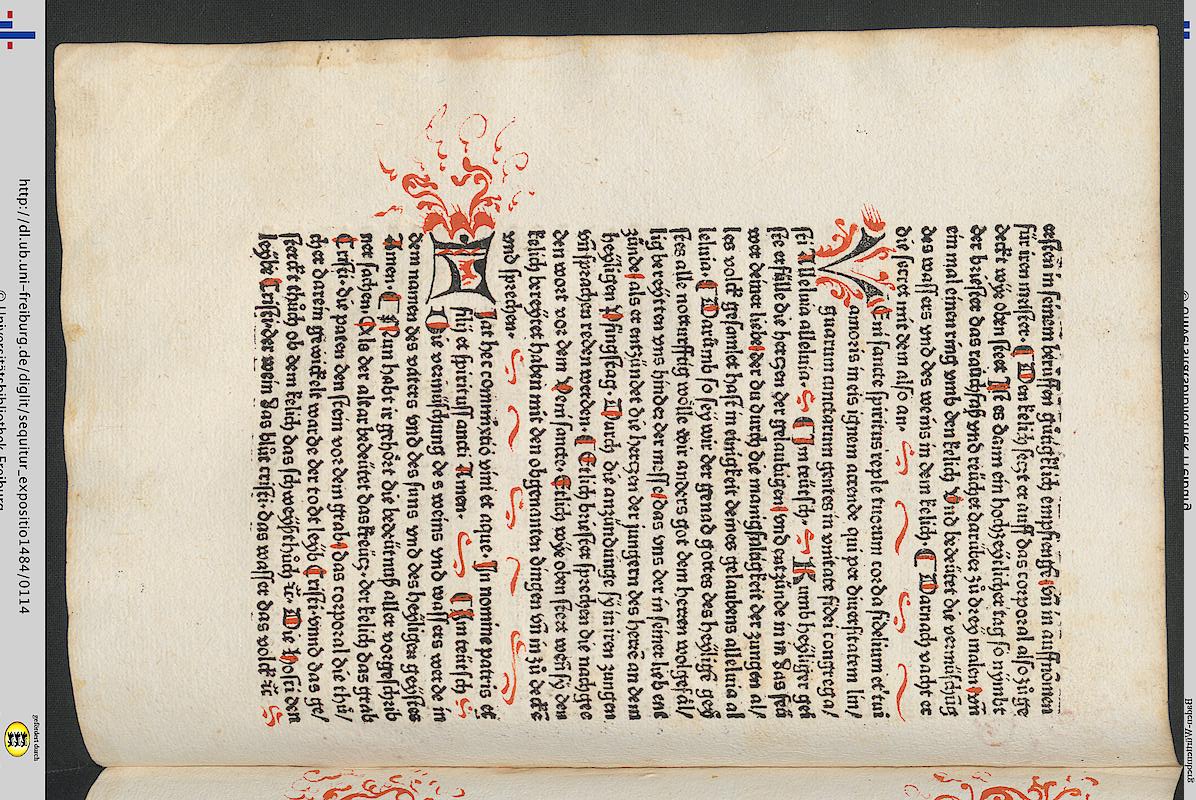 ersten in seinem berůffen gnedigklich empfienge vñ in auffnomen
für iren meister. Den kelich setzt er auff das corporal also zůge
deckt wye oben steet Ist es dann ein hochzeytlicher tag so nymbt
der briester das rauchfaß vnd reüchet darüber zů drey malen vñ
ein mal einen ring vmb den kelich Vnd bedeütet die vermüschūg
des wassers vnd des weins in dem kelich. Darnach vacht er
die secret mit dem also an.
Veni sancte spiritus reple tuorum corda fidelium et tui
amoris in eis ignem accende qui per diuersitatem lin/
guarum cunctarum gentes in vnitate fidei congrega/
sti Alleluia alleluia. Im teütsch. Kumb heyliger gei
ste erfülle die hertzen der gelaubigen vnd entzünde in das feür
wer deiner liebe der du durch die manigfaltigkeit der zungen al/
les volck gesamlet hast in einigkeit deines gelaubens alleluia al
leluia. Darumb so sey wir der genad gottes des heylige gey
stes alle notturfftig wölle wir anders got dem herren wolgefal/
lig bereyten vns hinder der messe das vns der in seiner lieb ent
zünde als er entzündet die hertzen der jungern des herrē an dem
heyligen Pfingstag. Durch die anzündunge sy in iren zungen
vñ sprachen reden werden. Etlich briester sprechen die nachgee
den wort vor dem Veni sancte. Etlich wye oben steet wen sy den
kelich bereytet haben mit den obgenanten dingen vñ in zů deckē
vnd sprechen.
Fiat hec commixtio vini et aque. In nomine patris et
filij et spiritus sancti Amen. Im teütsch
Die vermüschung des weins vnd wassers werde in
dem namen des vaters vnd des suns vnd des heyligen geystes
Amen. Nun habt ir gehört die bedeütnuß aller vorgeschrib
ner sachen Als der altar bedeütet das kreütz. der kelich das grab
Cristi. die paten den stein vor dem grab das corporal die thů/
cher darein gewickelt warde der todt leyb Cristi vnnd das ge/
steckt thůch ob dem kelich das schweyßthůch ꝛc. Die hosti den
leybe Cristi. der wein das blůt cristi. das wasser das volck ꝛc
http://dl.ub.uni-freiburg.de/diglit/sequitur_expositio1484/0114
© Universitätsbibliothek Freiburg
gefördert durch